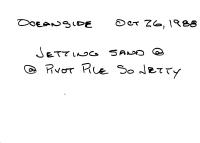 OCEANSIDE OCT 26, 1988
JETTING SAND @
@ PIVOT PILE SO JETTY